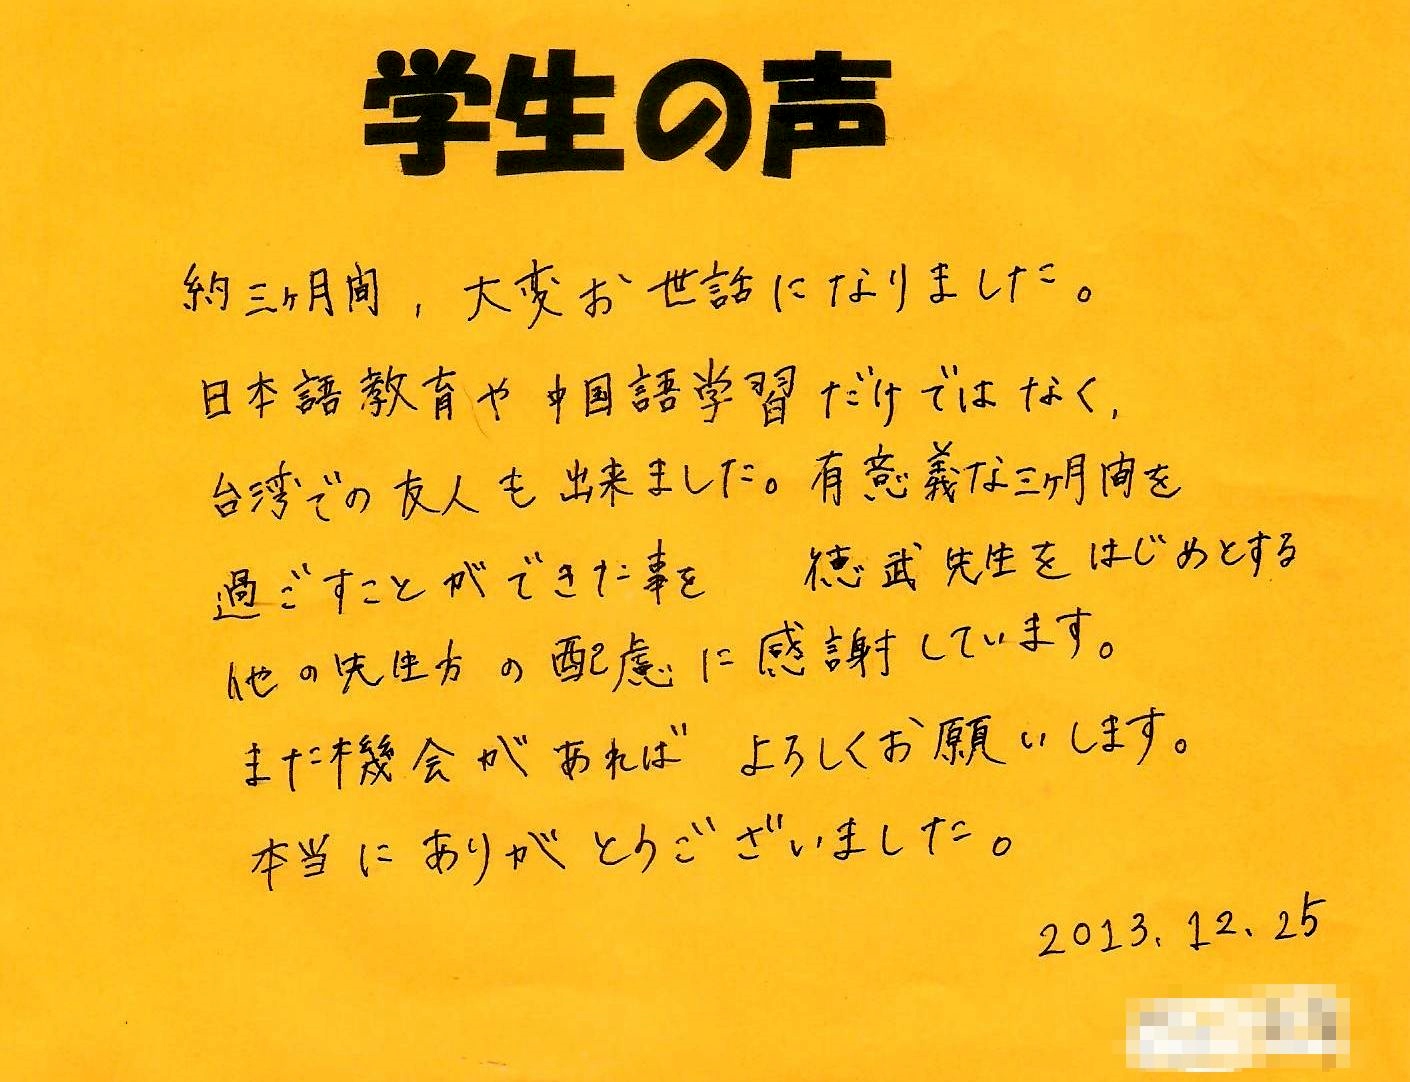 学生の声
約三ヶ月間，大変お世話になりました。
日本語教育や中国語学習だけではなく，
台湾での友人も出来ました。有意義な三ヶ月間を
過ごすことができた事を　徳武先生をはじめとする
他の先生方の配慮に感謝しています。
また機会があれば よろしくお願いします。
本当にありがとうございました。
2013.12.25